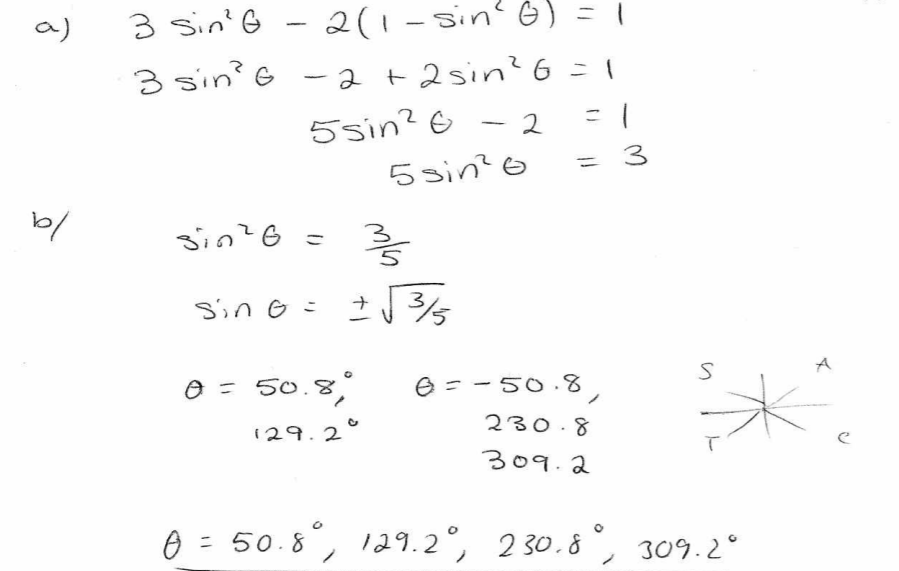 a) 3 sin²θ - 2(1 - sin²θ) = 1
3 sin²θ - 2 + 2sin²θ = 1
5sin²θ - 2 = 1
5sin²θ = 3
b/ sin²θ = 3/5
sin θ = ±√3/5
θ = 50.8°, θ = -50.8,
129.2° 230.8
309.2
S A
T C
θ = 50.8°, 129.2°, 230.8°, 309.2°